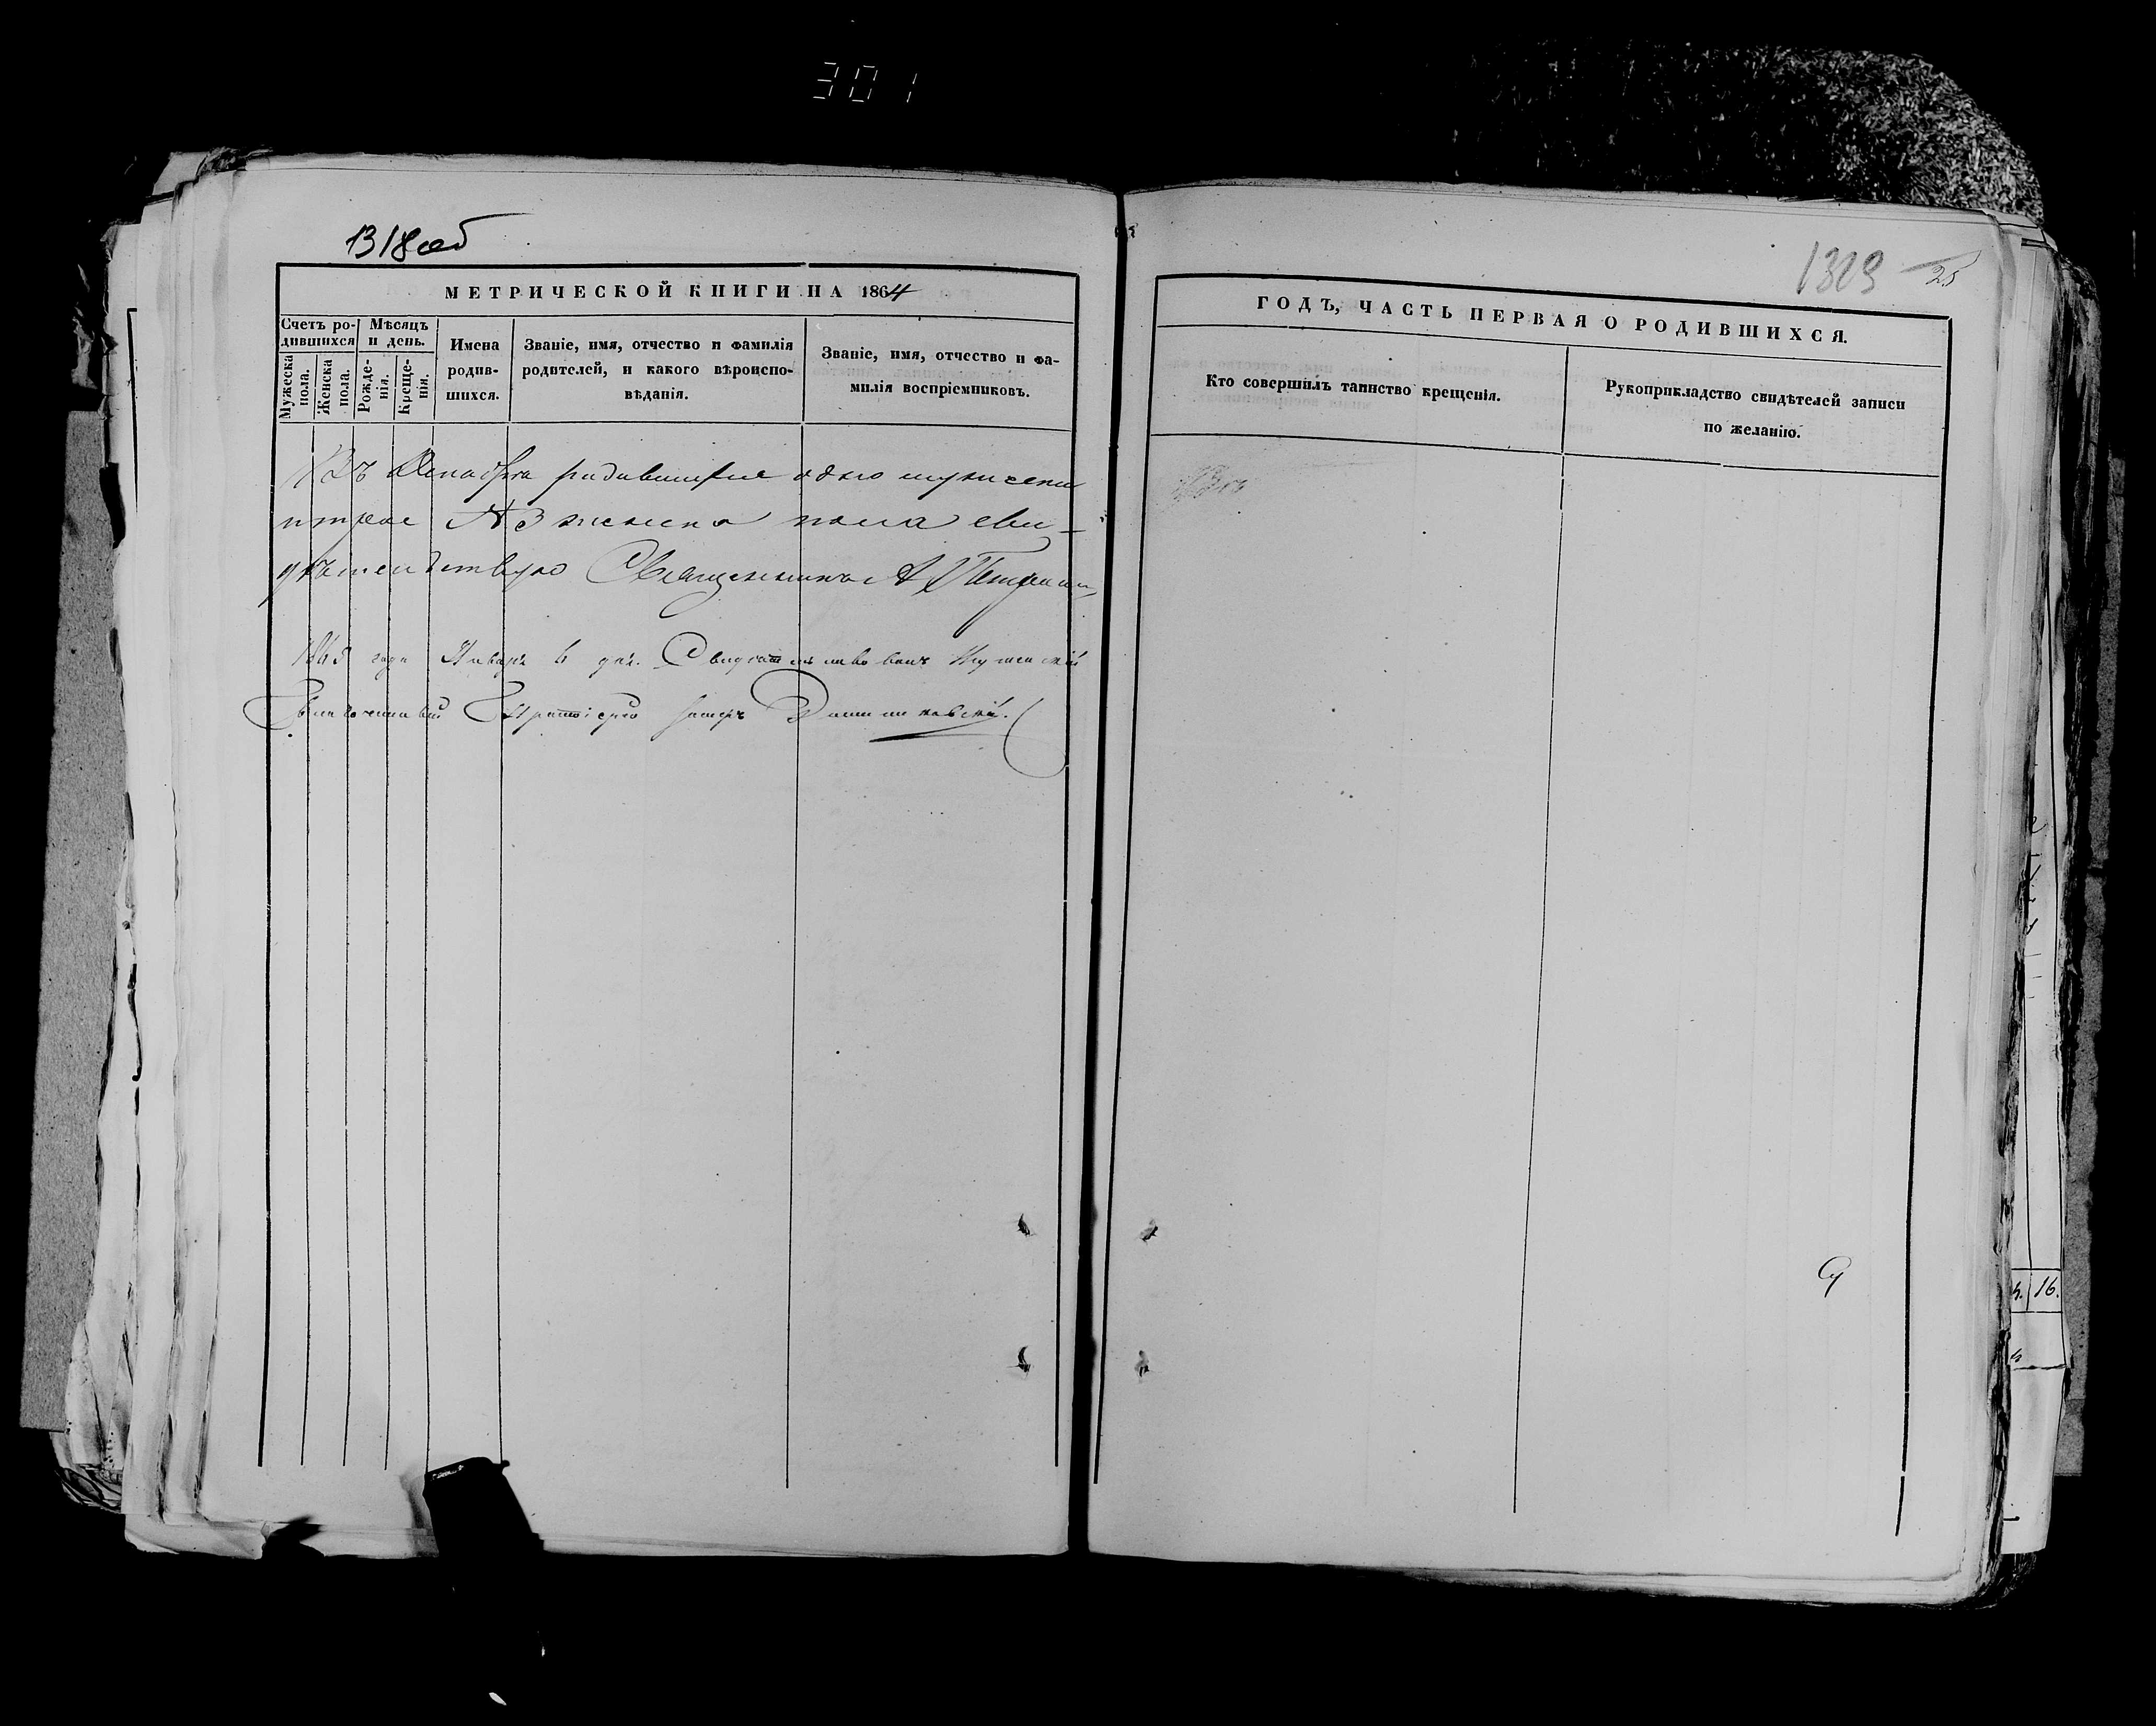 301
1318 об
МЕТРИЧЕСКОЙ КНИГИ НА 1864
Счетъ ро-
дившихся
Мужеска
пола.
Женска
пола.
Мѣсяцъ
и день.
Рожде-
нія.
Креще-
нія.
Имена
родив-
шихся.
Званіе, имя, отчество и фамилія
родителей, и какого вѣроиспо-
вѣданія.
Званіе, имя, отчество и фа-
милія воспріемниковъ.
Въ Декабрѣ родившихся одно мужеска
и трое № 3 женска пола сви-
дѣтельствую Священникъ А
1865 года Январ 6 дня. Свидѣтельствовалъ
Благочинный Іерей
1303
25
ГОДЪ, ЧАСТЬ ПЕРВАЯ О РОДИВШИХСЯ.
Кто совершилъ таинство крещенія.
Рукоприкладство свидѣтелей записи
по желанію.
16.